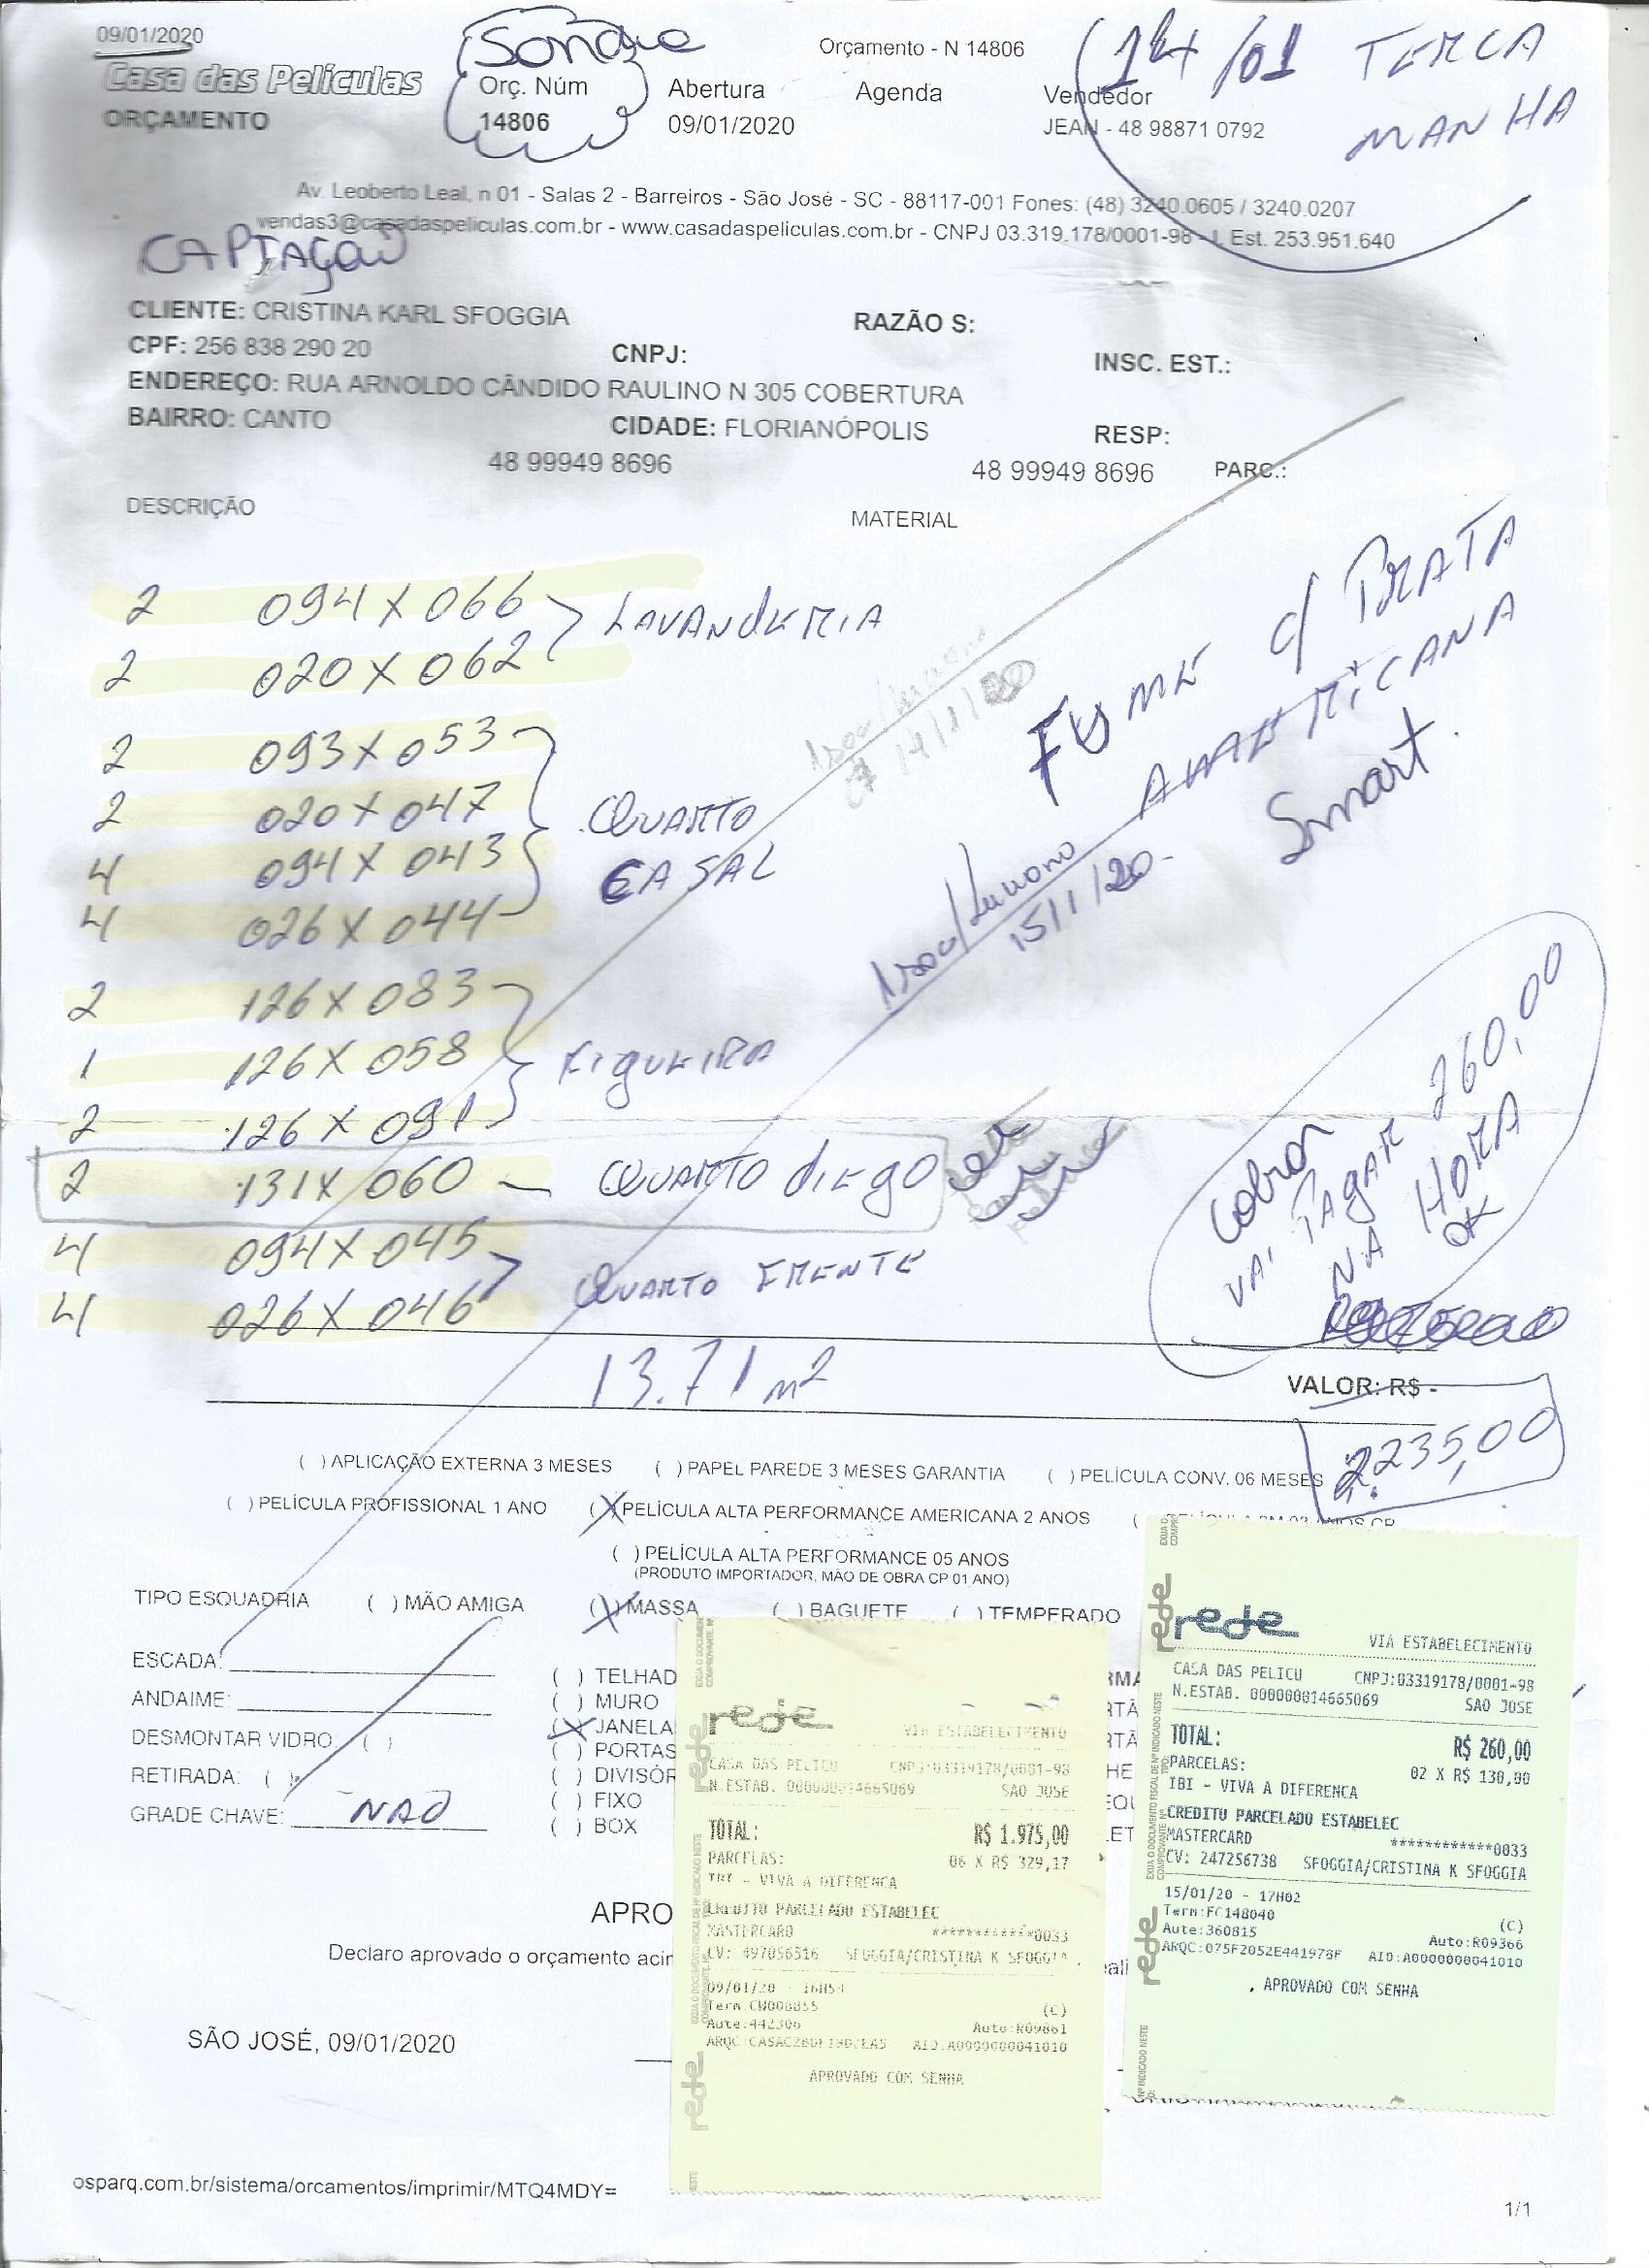 09/01/2020
Sondre
Orçamento - N 14806
14/01 TERCA
MANHA
Casa das Películas
ORÇAMENTO
Orç. Núm
14806
Abertura
09/01/2020
Agenda
Vendedor
JEAN - 48 98871 0792
Av. Leoberto Leal, n 01 - Salas 2 - Barreiros - São José - SC - 88117-001 Fones: (48) 3240.0605 / 3240.0207
vendas3@casadaspeliculas.com.br - www.casadaspeliculas.com.br - CNPJ 03.319.178/0001-98 - I. Est. 253.951.640
CAPTAÇÃO
CLIENTE: CRISTINA KARL SFOGGIA
RAZÃO S:
CPF: 256 838 290 20
CNPJ:
INSC. EST.:
ENDEREÇO: RUA ARNOLDO CÂNDIDO RAULINO N 305 COBERTURA
BAIRRO: CANTO
CIDADE: FLORIANÓPOLIS
RESP:
48 99949 8696
48 99949 8696
PARC.:
DESCRIÇÃO
MATERIAL
2 094 X 066 LAVANDERIA
2 020 X 062
2 093 X 053
2 020 X 047 QUARTO
4 094 X 043 CASAL
4 026 X 044
2 126 X 083
1 126 X 058 FIGUEIRA
2 126 X 091
2 131 X 060 - QUARTO DIEGO
4 094 X 045
4 026 X 046 QUARTO FRENTE
14/1/20
FUMÊ C/ PRATA
AMERICANA
Smart.
15/1/20-
Cobrar
VAI PAGAR 260,00
NA HORA
OK
13.71 m²
VALOR: R$ -
2.235,00
( ) APLICAÇÃO EXTERNA 3 MESES ( ) PAPEL PAREDE 3 MESES GARANTIA ( ) PELÍCULA CONV. 06 MESES
( ) PELÍCULA PROFISSIONAL 1 ANO (X) PELÍCULA ALTA PERFORMANCE AMERICANA 2 ANOS (
( ) PELÍCULA ALTA PERFORMANCE 05 ANOS
(PRODUTO IMPORTADOR, MAO DE OBRA CP 01 ANO)
TIPO ESQUADRIA ( ) MÃO AMIGA (X) MASSA ( ) BAGUETE ( ) TEMPERADO
ESCADA:
ANDAIME:
DESMONTAR VIDRO: ( )
RETIRADA: ( )
GRADE CHAVE: NAO
( ) TELHAD
( ) MURO
(X) JANELA
( ) PORTAS
( ) DIVISÓR
( ) FIXO
( ) BOX
APRO
Declaro aprovado o orçamento acir
SÃO JOSÉ, 09/01/2020
rede
VIA ESTABELECIMENTO
CASA DAS PELICU CNPJ:03319178/0001-98
N.ESTAB. 000000014665069 SAO JOSE
TOTAL: R$ 1.975,00
PARCELAS: 06 X R$ 329,17
IBI - VIVA A DIFERENCA
CREDITO PARCELADO ESTABELEC
MASTERCARD ************0033
CV: 497056516 SFOGGIA/CRISTINA K SFOGGIA
09/01/20 - 16H54
Term:CW000855 (C)
Aute:442306 Auto:R09861
AID:A0000000041010
APROVADO COM SENHA
rede
VIA ESTABELECIMENTO
CASA DAS PELICU CNPJ:03319178/0001-98
N.ESTAB. 000000014665069 SAO JOSE
TOTAL: R$ 260,00
PARCELAS: 02 X R$ 130,00
IBI - VIVA A DIFERENCA
CREDITO PARCELADO ESTABELEC
MASTERCARD ************0033
CV: 247256738 SFOGGIA/CRISTINA K SFOGGIA
15/01/20 - 17H02
Term:FC148040 (C)
Aute:360815 Auto:R09366
ARQC:075F2052E441978F AID:A0000000041010
APROVADO COM SENHA
osparq.com.br/sistema/orcamentos/imprimir/MTQ4MDY=
1/1